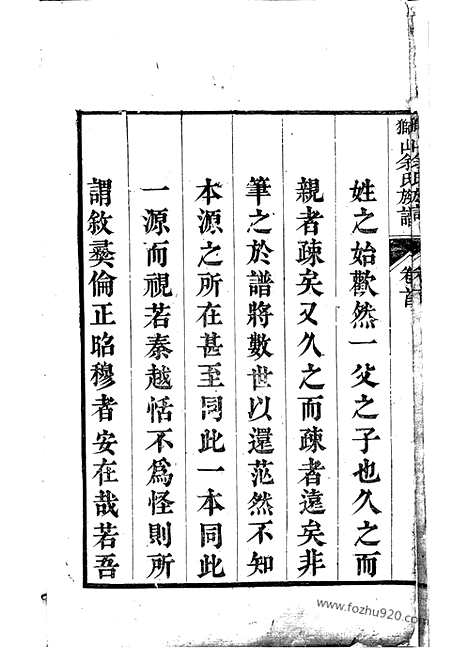 獅山余氏族譜
卷首
姓之始歡然一父之子也久之而
親者疎矣又久之而疎者遠矣非
筆之於譜將數世以還茫然不知
本源之所在甚至同此一本同此
一源而視若秦越恬不為怪則所
謂敘彝倫正昭穆者安在哉若吾
www.fozhu920.com